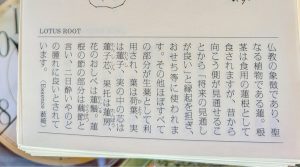 LOTUS ROOT
仏教の象徴であり、聖
なる植物である蓮。根
茎は食用の蓮根として
食されますが、昔から
向こう側が見通せるこ
とから「将来の見通し
が良い」と縁起を担ぎ、
おせち等に使われま
す。その他ほぼすべて
の部分が生薬として利
用され、葉は荷葉、実
は蓮子、実の中の芯は
蓮子芯、果托は蓮房、
花のおしべは蓮鬚。蓮
根の節の部分は藕節と
言い、二日酔いやのど
の腫れに良いとされて
います。